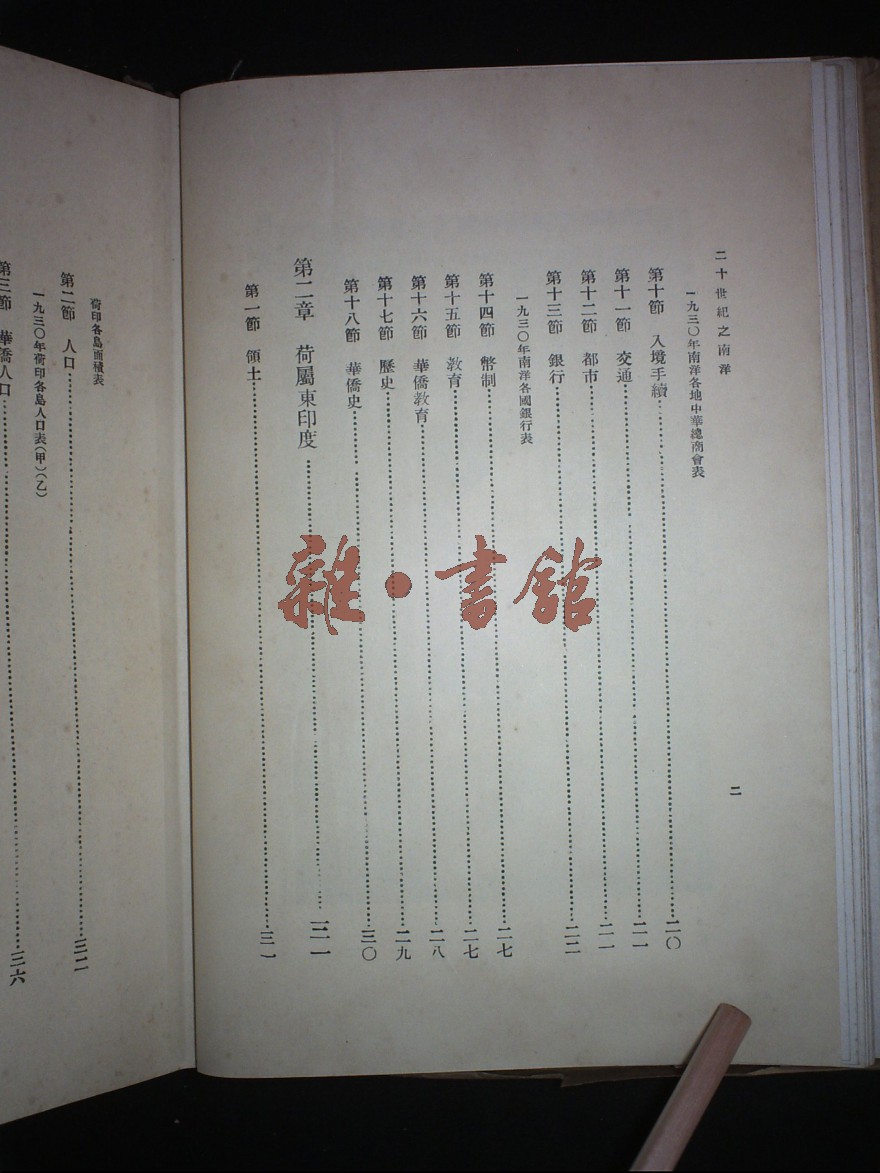 二十世紀之南洋
二
一九三〇年南洋各地中華總商會表
第十節 入境手續……二〇
第十一節 交通……二一
第十二節 都市……二一
第十三節 銀行……二二
一九三〇年南洋各國銀行表
第十四節 幣制……二七
第十五節 教育……二七
第十六節 華僑教育……二八
第十七節 歷史……二九
第十八節 華僑史……三〇
第二章 荷屬東印度……三一
第一節 領土……三一
荷印各島面積表
第二節 人口……三二
一九三〇年荷印各島人口表(甲)(乙)
第三節 華僑人口……三六
雜·書館